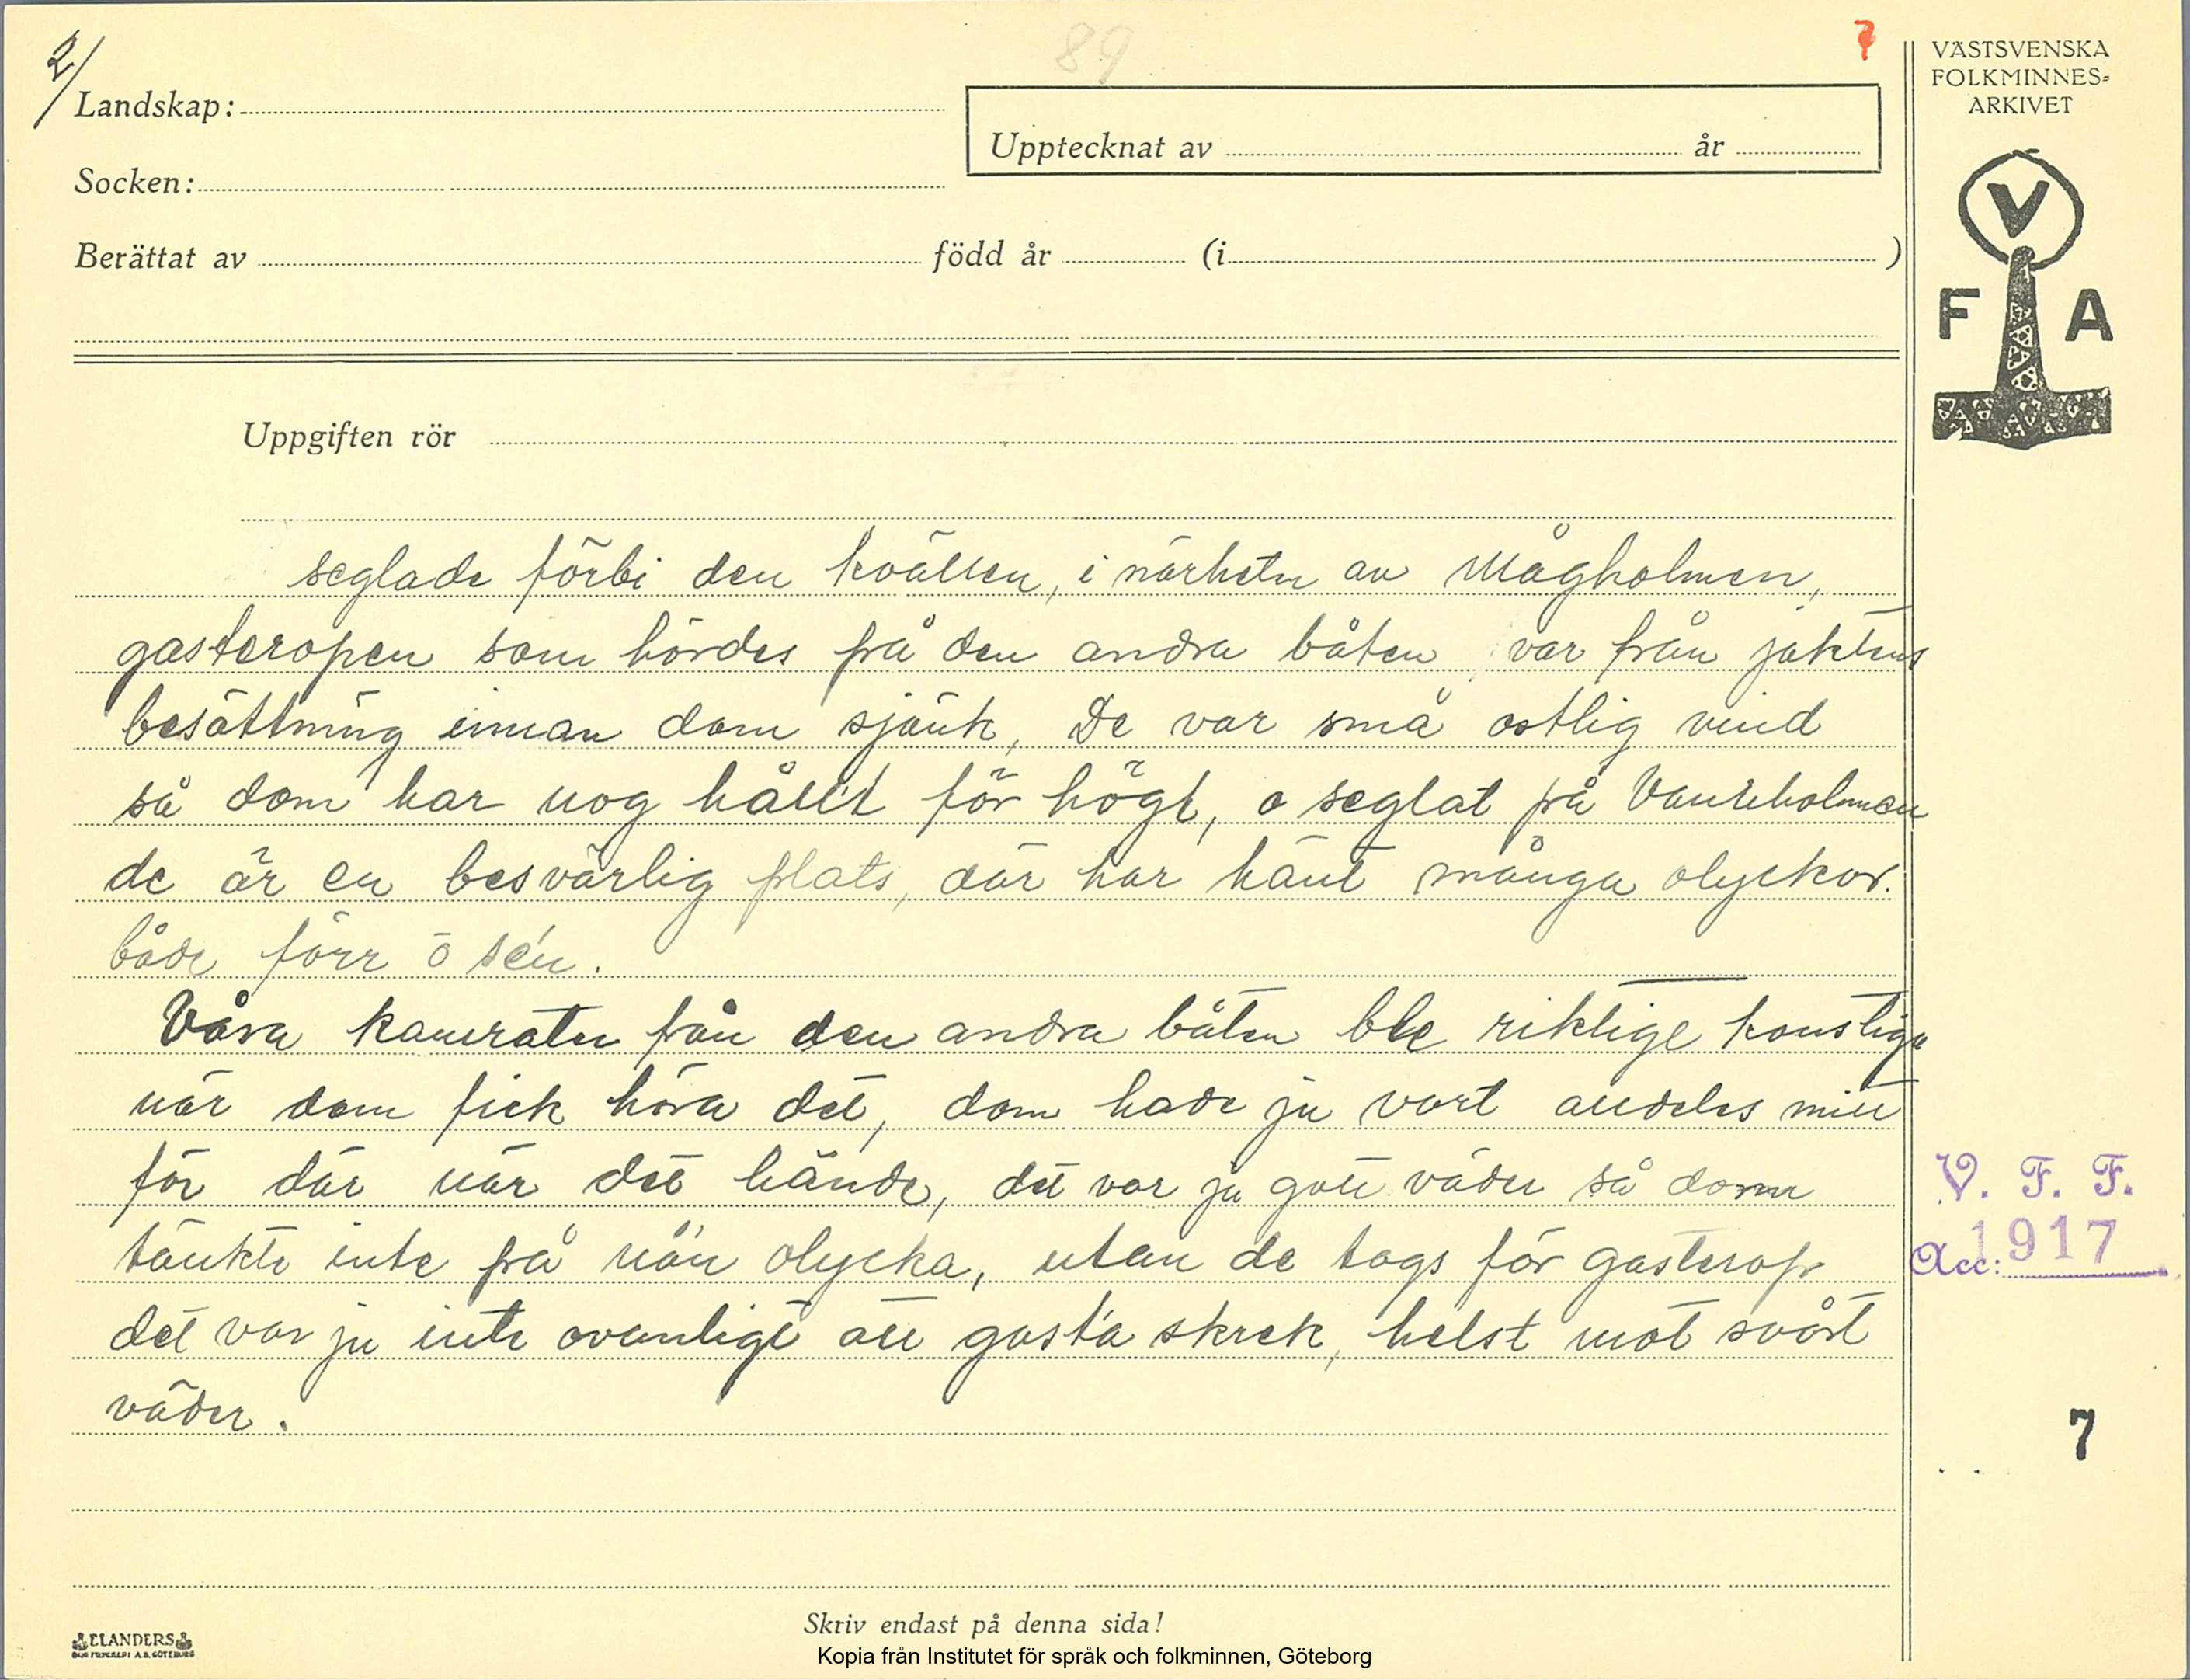 2/
89
7
Landskap:
Upptecknat av år
Socken:
Berättat av född år (i )
Uppgiften rör
VÄSTSVENSKA
FOLKMINNES=
ARKIVET
V
F A
seglade förbi den kvällen, i närheten av Mågholmen,
gasteropen som hördes på den andra båten, var från jaktens
besättning innan dom sjänk, De var små ostlig vind
så dom har nog hållt för högt, o seglat på Vannholmen
de är en besvärlig plats, där har hänt många olyckor.
både förr o sén.
Våra kamrater från den andra båten ble riktige konstiga
när dom fick höra det, dom hade ju vart andeles mitt
för där när det hände, det var ju gott väder så dom
tänkte inte på nån olycka, utan de togs för gasterop
det var ju inte ovanligt att gasta skrek, helst mot svårt
väder.
V. F. F.
Acc: 1917
7
Skriv endast på denna sida!
ELANDERS
Kopia från Institutet för språk och folkminnen, Göteborg